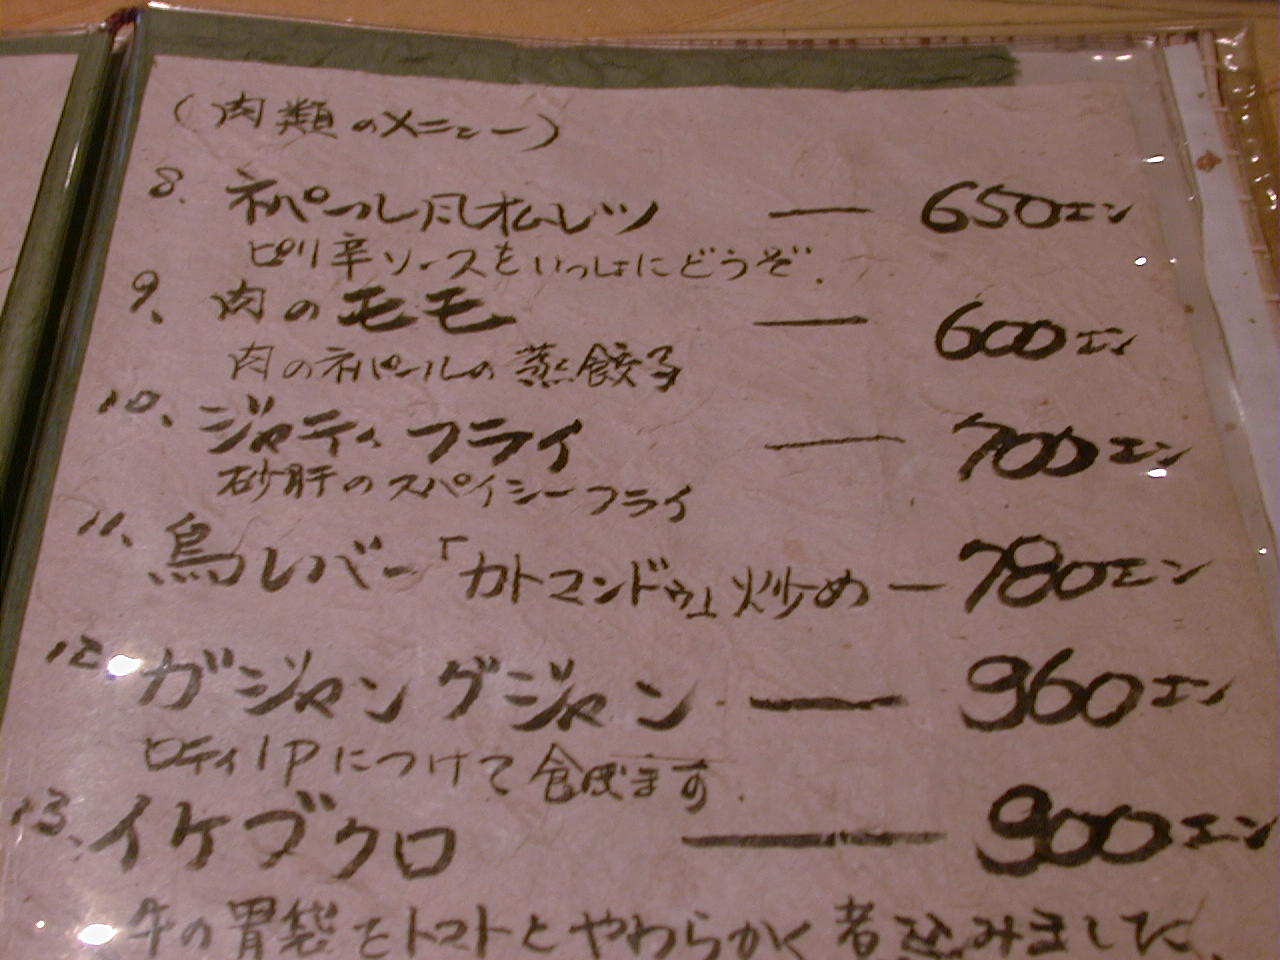 (肉類のメニュー)
8. ネパール風オムレツ — 650エン
ピリ辛ソースをいっしょにどうぞ.
9、肉のモモ — 600エン
肉のネパールの蒸餃子
10、ジャティ フライ — 700エン
砂肝のスパイシーフライ
11、鳥レバー「カトマンドゥ」炒め — 780エン
12 ガジャングジャン — 960エン
ロティ1Pにつけて食べます.
13、イケブクロ — 900エン
牛の胃袋をトマトとやわらかく煮込みました、